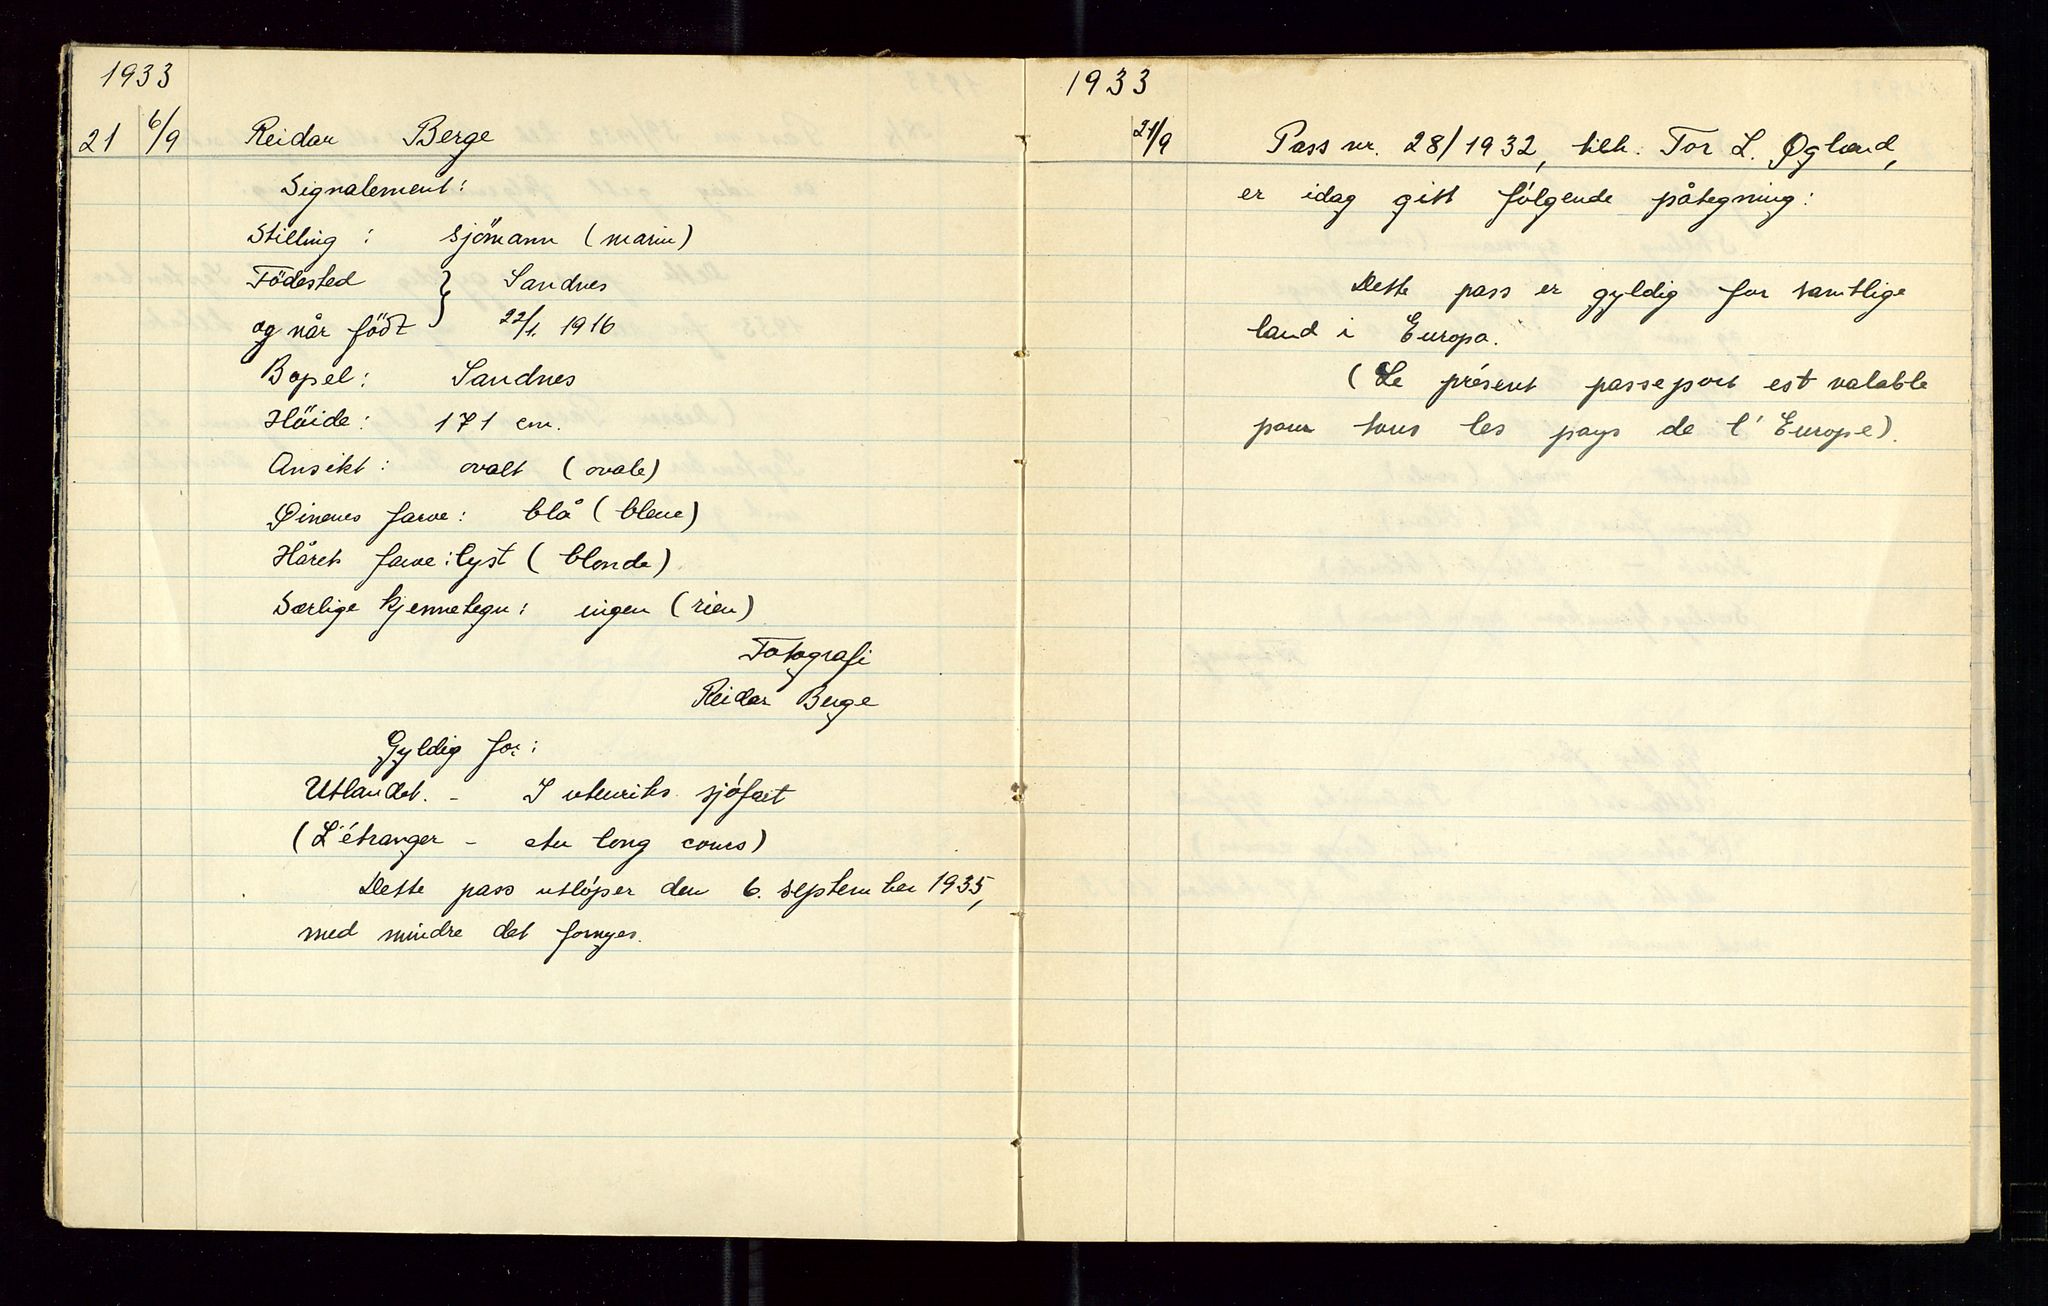 1933
21 6/9 Reidar Berge
Signalement:
Stilling: sjömann (marin)
Födested } Sandnes
og når födt 22/1. 1916
Bopel: Sandnes
Höide: 171 cm.
Ansikt: ovalt (ovale)
Øinenes farve: blå (bleue)
Hårets farve: lyst (blonde)
Særlige kjennetegn: ingen (rien)
Fotografi
Reidar Berge
Gyldig for:
Utlandet. - I utenriks sjöfart
(L'étranger - au long cours)
Dette pass utlöper den 6. september 1935,
med mindre det fornyes.
1933
21/9 Pass nr. 28/1932, tilh. Tor L. Øgland,
er idag gitt fölgende påtegning:
Dette pass er gyldig for samtlige
land i Europa.
(Le présent passeport est valable
pour tous les pays de l'Europe).